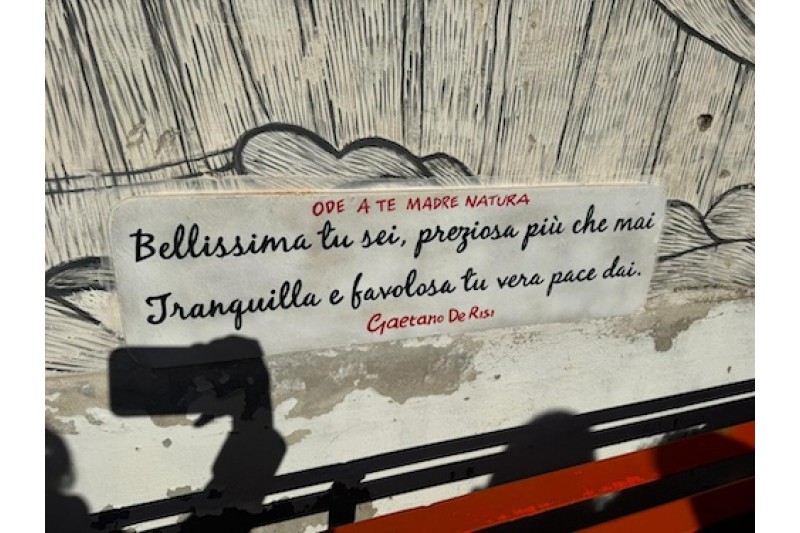 ODE A TE MADRE NATURA
Bellissima tu sei, preziosa più che mai
Tranquilla e favolosa tu vera pace dai.
Gaetano De Risi